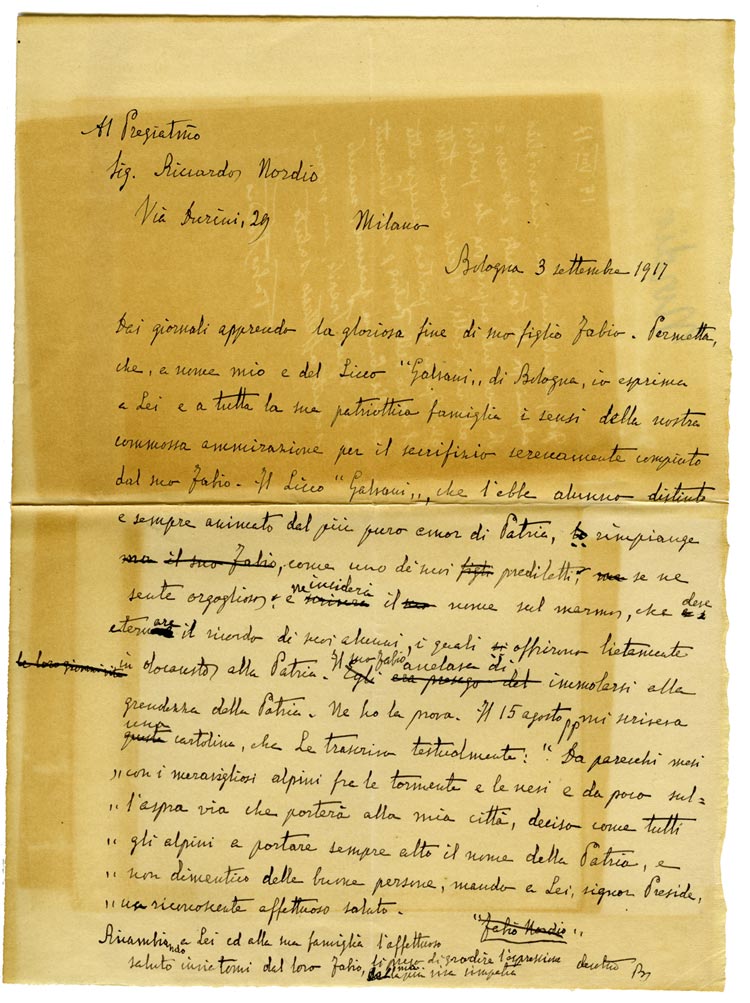 Al Pregiatmo
Sig. Riccardo Nordio
Via Durini, 29 Milano
Bologna 3 settembre 1917
Dai giornali apprendo la gloriosa fine di suo figlio Fabio. Permetta,
che, a nome mio e del Liceo "Galvani" di Bologna, io esprima
a Lei e a tutta la sua patriottica famiglia i sensi della nostra
commossa ammirazione per il sacrifizio serenamente compiuto
dal suo Fabio. Il Liceo "Galvani", che l'ebbe alunno distinto
e sempre animato dal più puro amor di Patria, lo rimpiange
ma il suo Fabio, come uno dei suoi figli prediletti, ma se ne
sente orgoglioso, e ne inciderà il suo nome sul marmo, che deve
eternare il ricordo di suoi alunni, i quali si offrirono lietamente
la loro giovinezza in olocausto alla Patria. Il suo Fabio Egli anelava di immolarsi alla
grandezza della Patria. Ne ho la prova. Il 15 agosto pp mi scriveva
una questa cartolina, che Le trascrivo testualmente: "Da parecchi mesi
" con i meravigliosi alpini fra le tormente e le nevi e da poco sul=
" l'aspra via che porterà alla mia città, deciso come tutti
" gli alpini a portare sempre alto il nome della Patria, e
" non dimentico delle buone persone, mando a Lei, signor Preside,
" un riconoscente affettuoso saluto.
"Fabio Nordio"
Ricambiando a Lei ed alla sua famiglia l'affettuoso
saluto inviatomi dal loro Fabio, di gradire l'espressione
della più viva simpatia